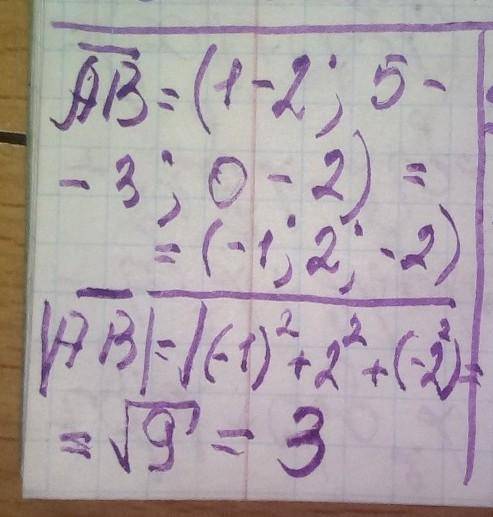 AB = (1 - 2; 5 -
- 3; 0 - 2) =
= (-1; 2; -2)
|AB| = √(-1)² + 2² + (-2)² =
= √9 = 3